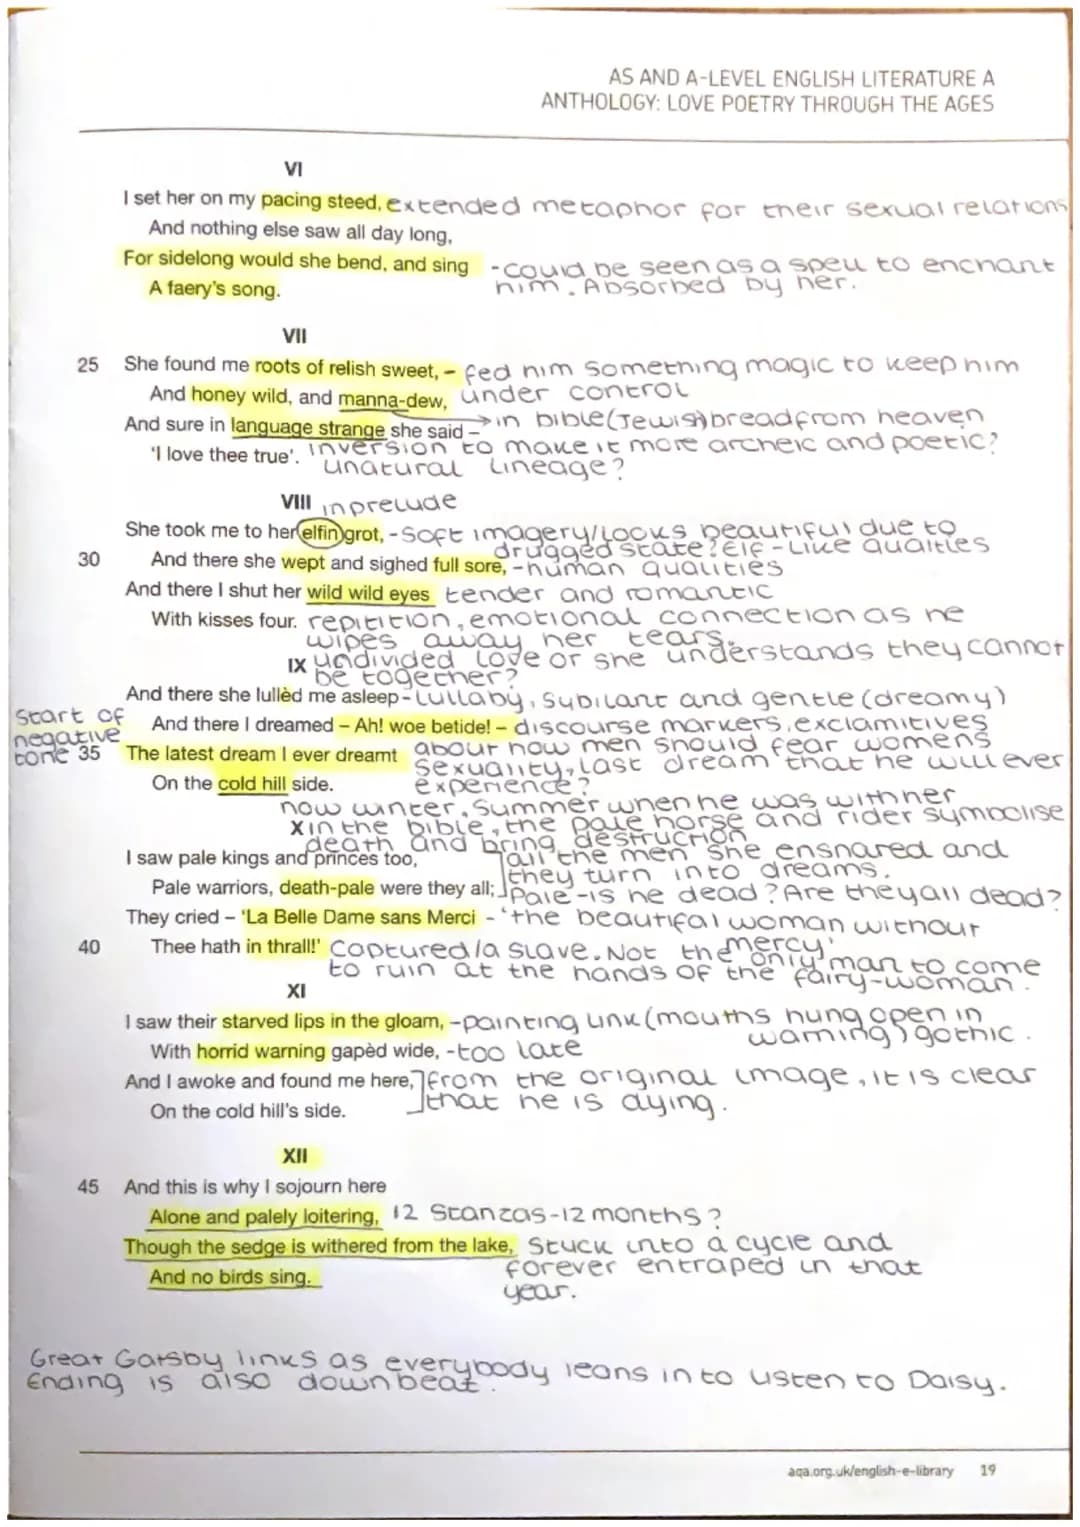 AS AND A-LEVEL ENGLISH LITERATURE A
ANTHOLOGY: LOVE POETRY THROUGH THE AGES
VI
I set her on my pacing steed, extended metaphor for their sexual relations
And nothing else saw all day long,
For sidelong would she bend, and sing - could be seen as a spell to enchant
A faery's song. him. Absorbed by her.
VII
25 She found me roots of relish sweet, - fed him something magic to keep him
And honey wild, and manna-dew, under control
And sure in language strange she said - in bible (Jewish) bread from heaven
'I love thee true'. inversion to make it more archeic and poetic?
unatural lineage?
VIII in prelude
She took me to her elfin grot, - soft imagery/looks beautiful due to
drugged state? Elf-like qualties
30 And there she wept and sighed full sore, - human qualities
And there I shut her wild wild eyes tender and romantic
With kisses four. repitition, emotional connection as he
wipes away her tears.
IX undivided love or she understands they cannot
be together?
And there she lullèd me asleep - lullaby, subilant and gentle (dreamy)
Start of
negative
tone
And there I dreamed – Ah! woe betide! - discourse markers, exclamitives
35 The latest dream I ever dreamt about how men should fear womens
sexuality, last dream that he will ever
On the cold hill side. experience?
now winter, summer when he was with her
X in the bible, the pale horse and rider symbolise
death and bring destruction
I saw pale kings and princes too, all the men she ensnared and
they turn into dreams.
Pale warriors, death-pale were they all; Pale - is he dead? Are they all dead?
They cried – 'La Belle Dame sans Merci - 'the beautifal woman without
mercy'
40 Thee hath in thrall!' captured/a slave. Not the only man to come
to ruin at the hands of the fairy-woman.
XI
I saw their starved lips in the gloam, - painting link (mouths hung open in
warning) gothic.
With horrid warning gapèd wide, - too late
And I awoke and found me here, from the original image, it is clear
that he is dying.
On the cold hill's side.
XII
45 And this is why I sojourn here
Alone and palely loitering, 12 stanzas-12 months?
Though the sedge is withered from the lake, Stuck into a cycle and
forever entraped in that
And no birds sing. year.
Great Gatsby links as everybody leans in to listen to Daisy.
Ending is also downbeat.
aqa.org.uk/english-e-library 19